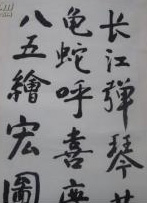 长江弹琴
龟蛇呼喜
八五繪宏圖